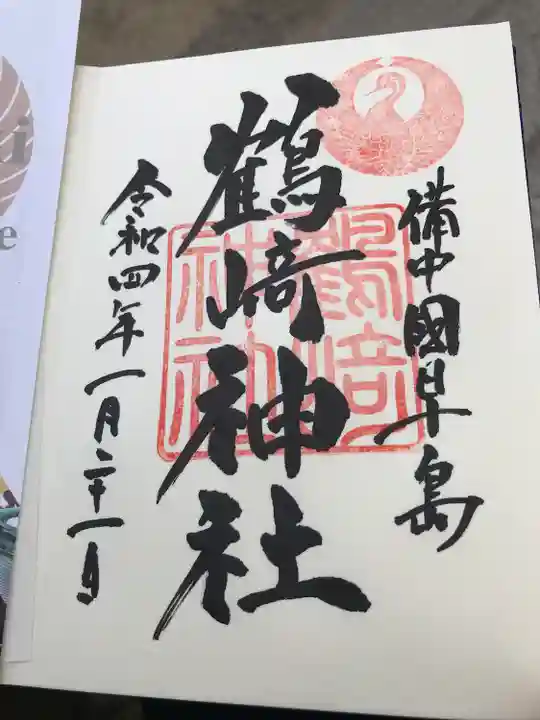 備中國早島
鶴﨑神社
鶴﨑神社
令和四年一月二十一日
i
e